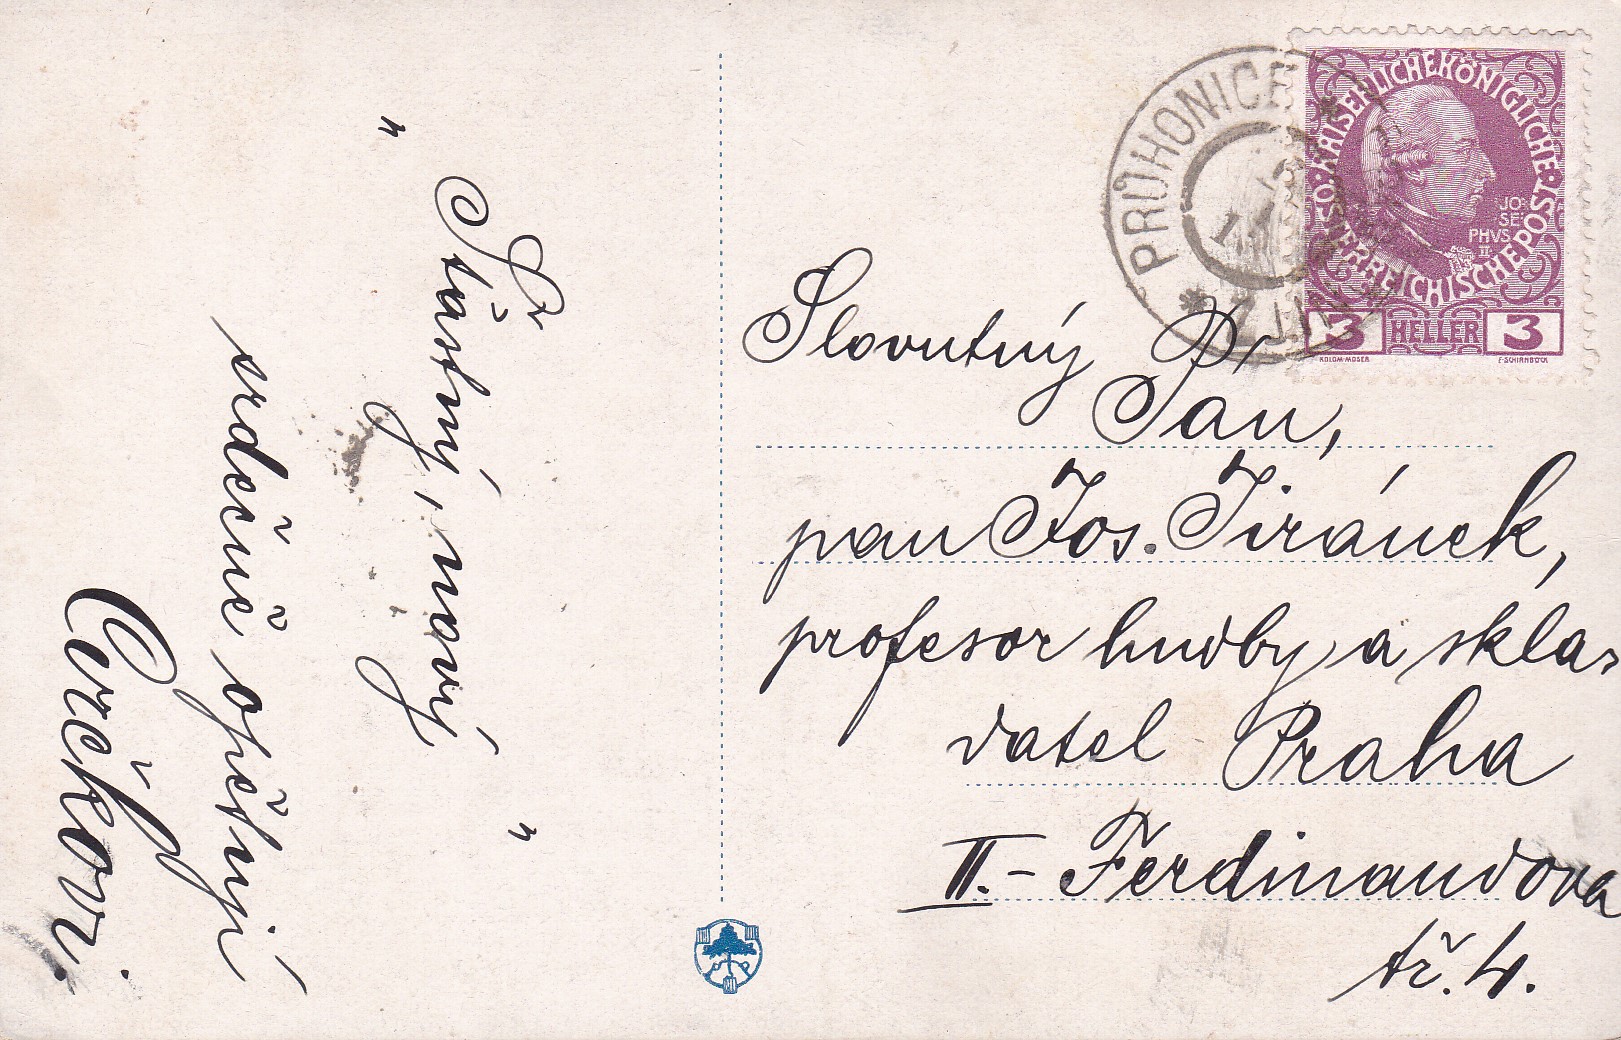 „Šťastný, nový r“
srdečně opětují
Cvrčkovi.
PRŮHONICE
KAISERLICHEKÖNIGLICHE
ÖSTERREICHISCHEPOST
JO
SE
PHVS
II
3 HELLER 3
KOLOM·MOSER
F·SCHIRNBÖCK
Slovutný P.
Pan,
pan Jos. Jiránek,
profesor hudby a skla-
datel Praha
II.- Ferdinandova
tř. 4.